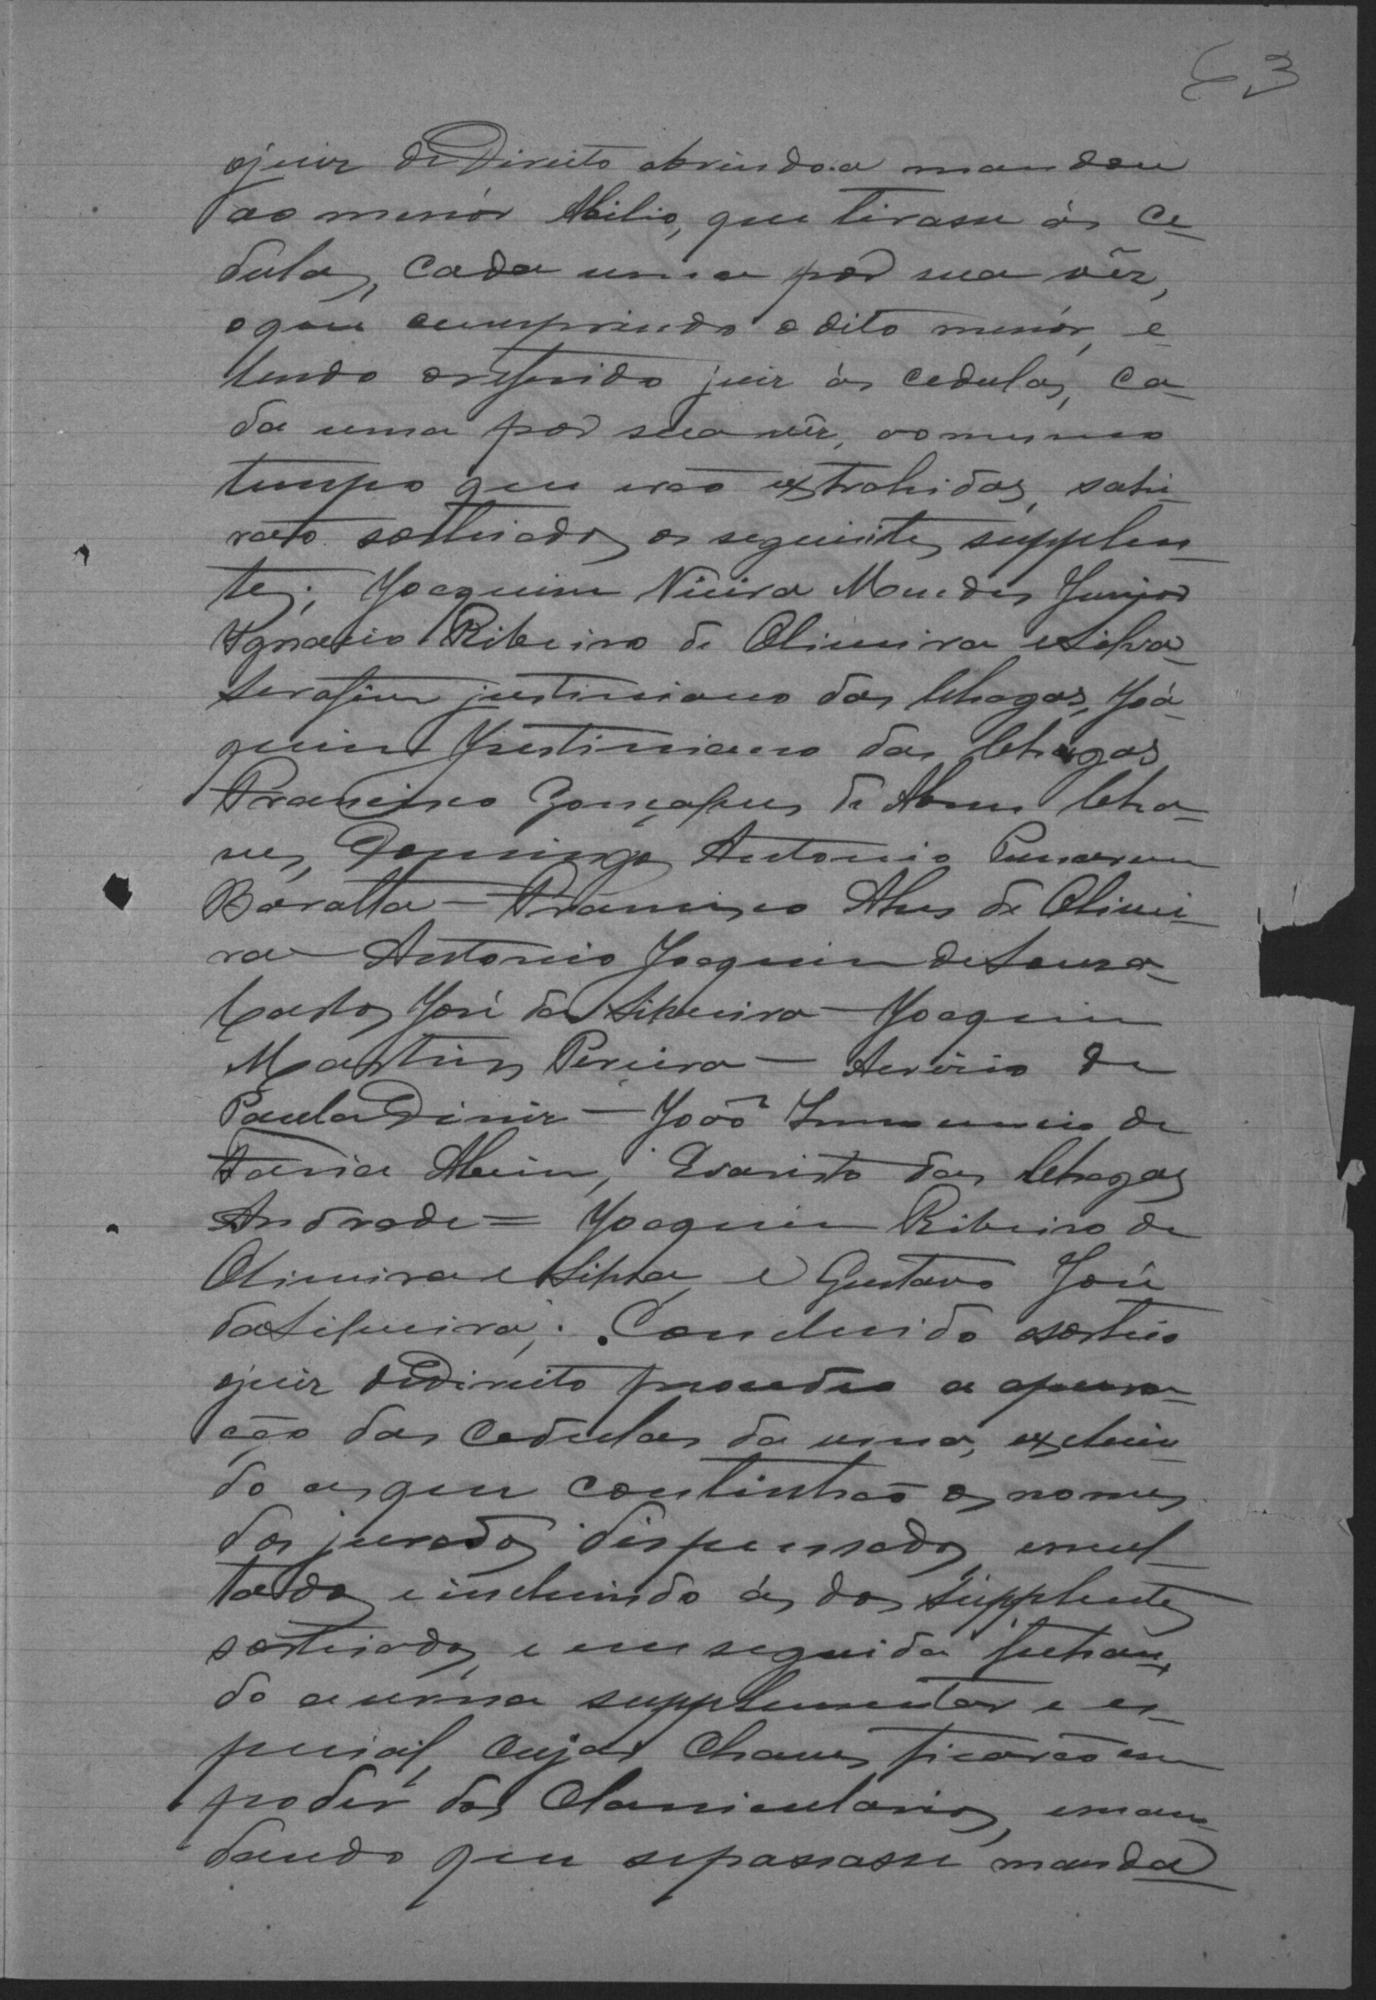 63
ojuiz deDireito abrindo.a mandou
ao menór Abilio, que tirasse ás ce-
dulas, cada uma por sua vêz,
oque cumprindo o dito menór, e
lendo oreferido juiz ás cedulas, ca-
da uma por sua vêz, aomesmo
tempo que erão extrahidas, sahi-
rão sorteados os seguintes supplen-
tes; Joaquim Vieira Mendes Junior
Ignacio Ribeiro de Oliveira eSilva-
Serafim justiniano das Chagas, Joá-
quim Justiniano das Chagas
Francisco Gonçalves de Abreu Cha-
ves, Domingos Antonio
Baratta - Francisco Alves de Olivei-
ra - Antonio Joaquim deSouza-
Carlos José da Silveira - Joaquim
Martins Pereira - de
PaulaDiniz - João Innocencio de
Faria Alvim, Evaristo das Chagas
Andrade = Joaquim Ribeiro de
Oliveira e Silva, e Gustavo José
daSilveira; . Concluido osorteio
ojuiz deDireito procedeo a apura-
ção das cedulas da urna, excluin
do asque continhão os nomes
dos jurados dispensados, emul-
tados eincluindo ás dos supplentes
sorteados, e emseguida fechan-
do a urna supplementar e es-
pecial, cujas chaves ficarão em
poder dos Clavicularios, eman-
dando que sepassasse manda